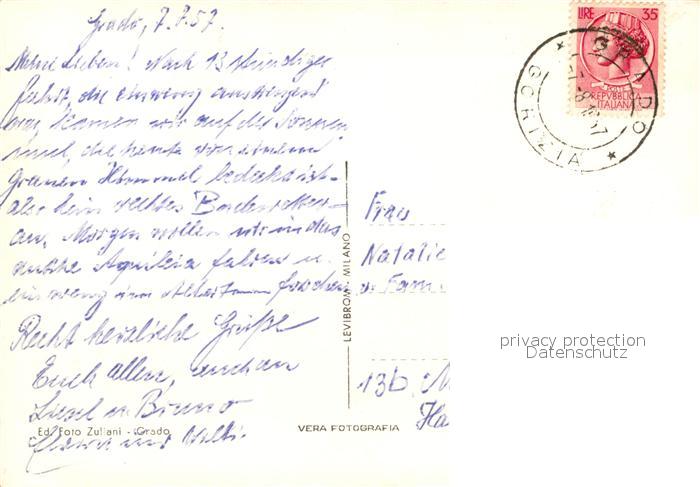 Grado, 7.7.57.
Meine Lieben! Nach 13 stündiger
Fahrt, die ein wenig anstrengend
war, kamen wir auf der Sonnen
insel, die heute von einem
grauen Himmel bedeckt ist -
also kein rechtes Badewetter -
an. Morgen wollen wir in das
antike Aquileia fahren u.
ein wenig im Altertum forschen
Recht herzliche Grüße
Euch allen, auch an
Liesel u. Bruno
und Willi.
Ed. Foto Zuliani - Grado
LEVIBROM MILANO
VERA FOTOGRAFIA
LIRE 35
REPVBBLICA
ITALIANA
GRADO
GORIZIA
Frau
Natalie
u. Fam.
13b
privacy protection
Datenschutz